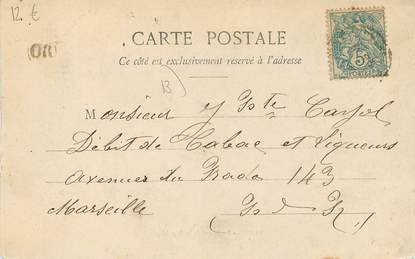 12 €
OR
CARTE POSTALE
Ce côté est exclusivement réservé à l'adresse
13
Monsieur
Débit de Tabac et Liqueurs
Avenue du Prado 143
Marseille B. d. R.
5